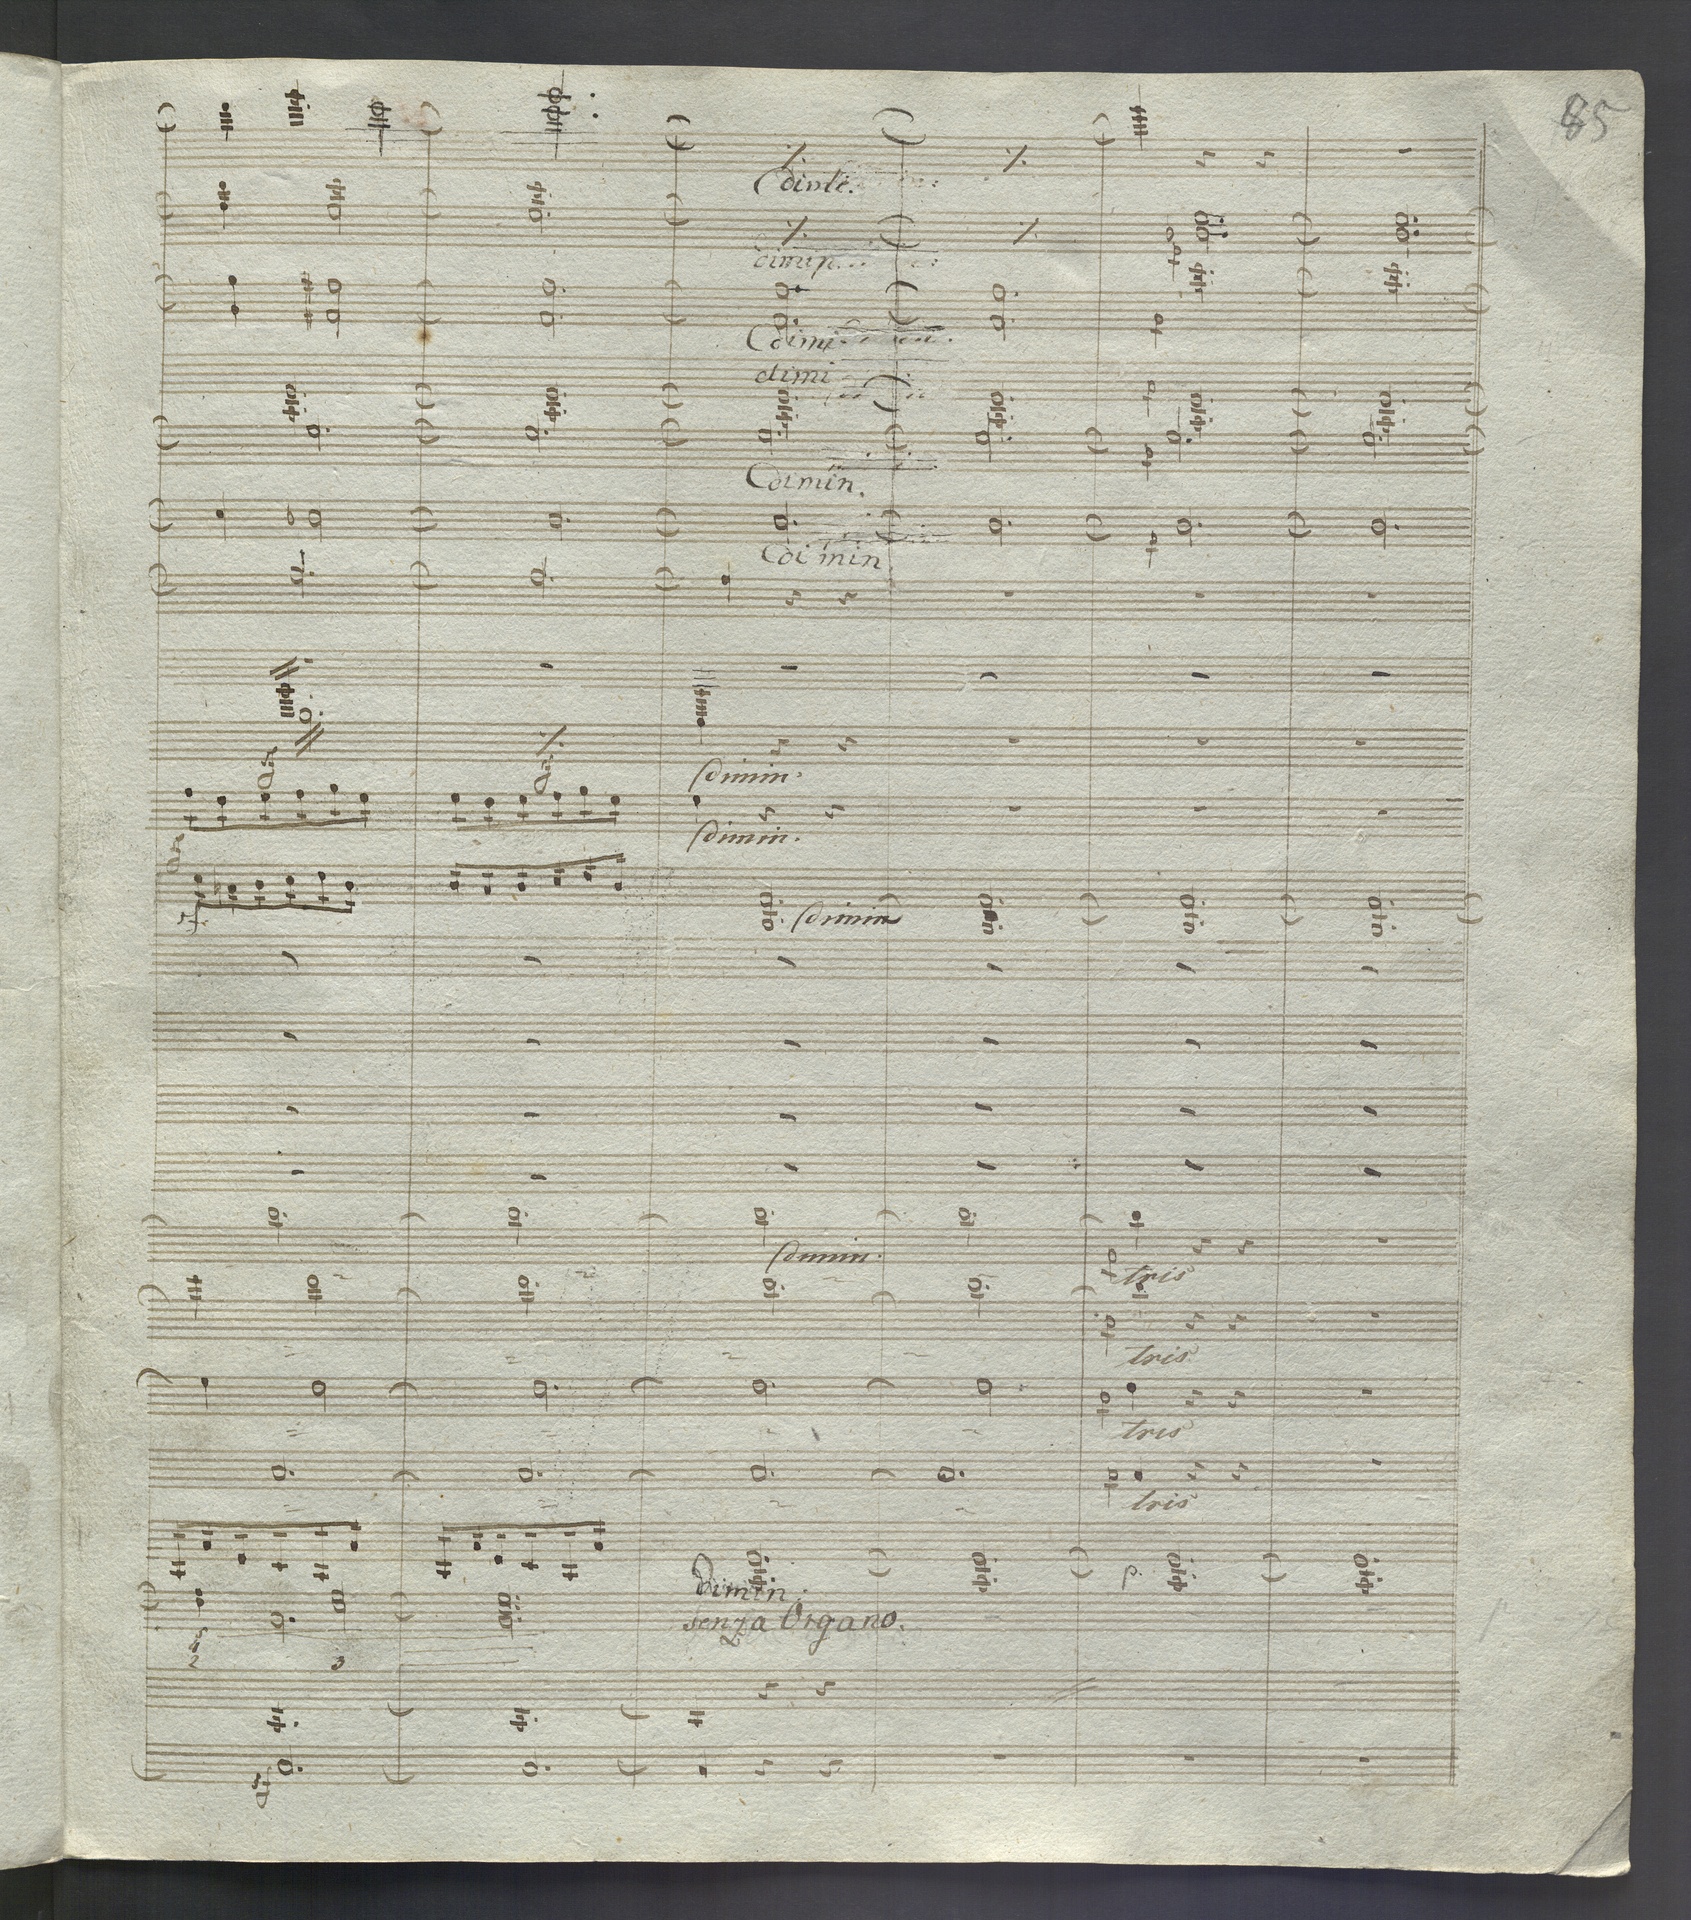 85
dimin.
dimi
dimin.
dimin
dimin.
dimin.
dimin
dimin.
tris
tris
tris
tris
p.
dimin.
senza Organo.
2 3
sf